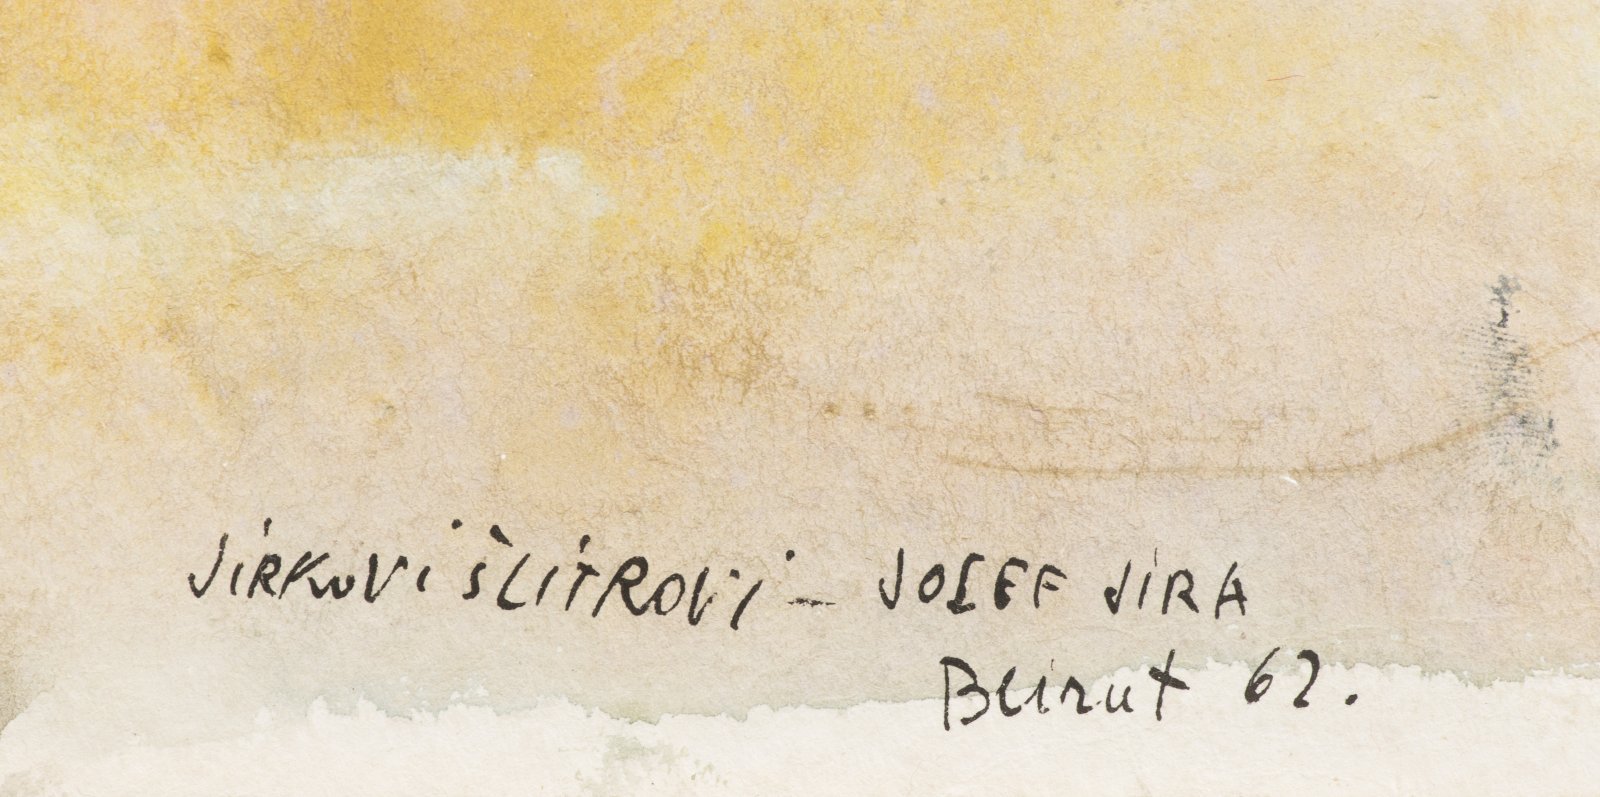 JÍRKOVI ŠLITROVI – JOSEF JÍRA
Beirut 62.